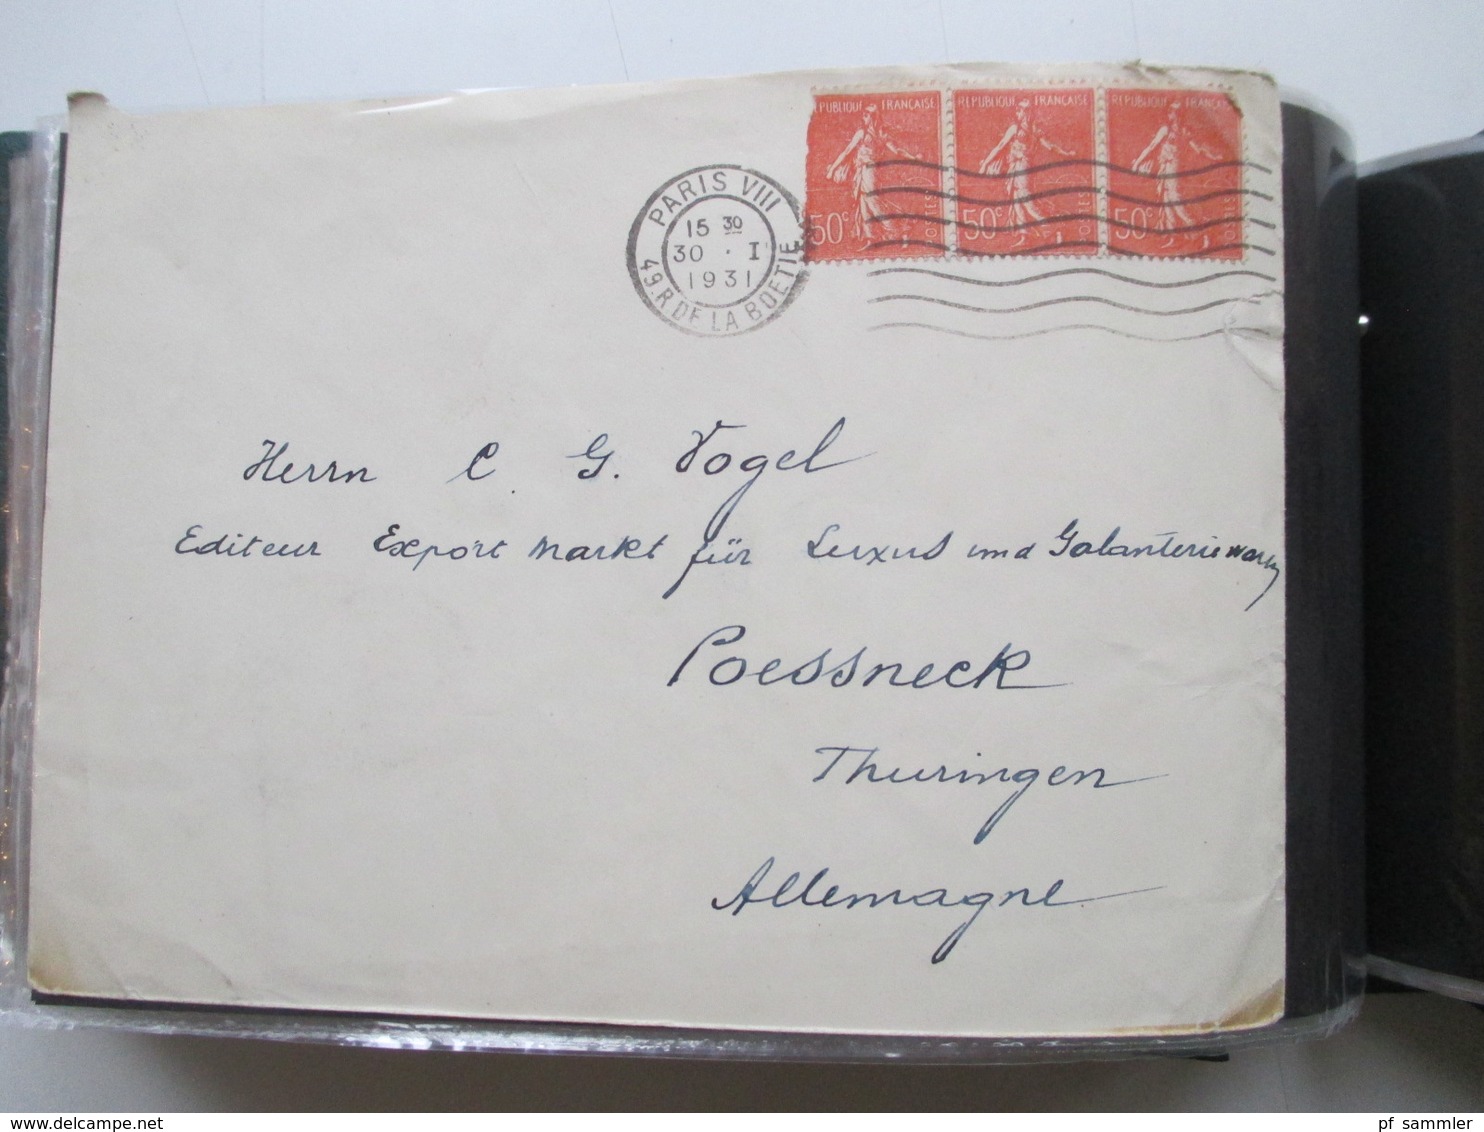 PUBLIQUE FRANÇAISE REPUBLIQUE FRANÇAISE REPUBLIQUE FRANÇAISE
50c POSTES 50c POSTES 50c POSTES
PARIS VIII
15 30
30 · I
1931
49.R DE LA BOETIE
Herrn C. G. Vogel
Editeur Export Markt für Luxus und Galanteriewaren
Poessneck
Thuringen
Allemagne
pf_sammler